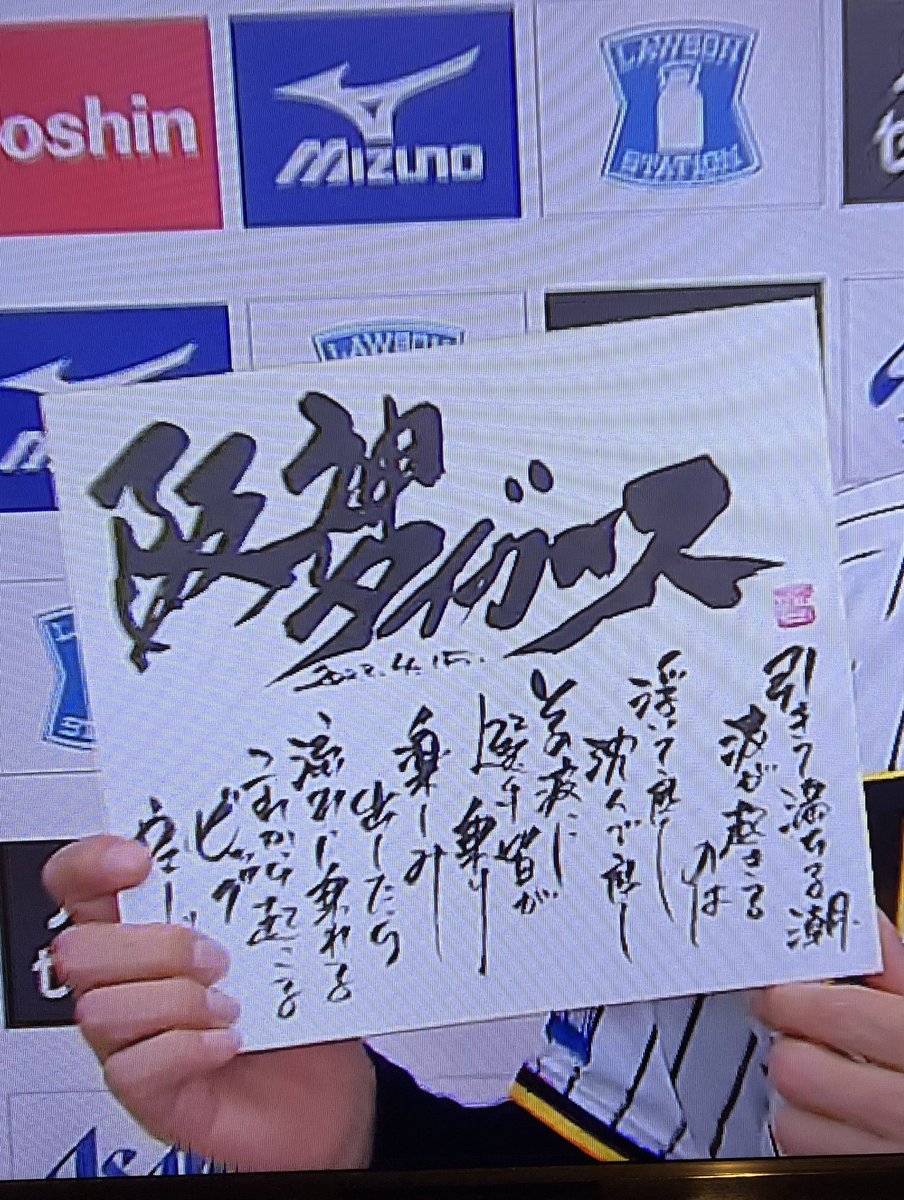 oshin
MIZUNO
LAWSON
STATION
LAWSON
阪神
タイガース
2022.4.15.
引きて満ちる潮
波が起きる
のは
浮いて良し
沈んで良し
波に
選手皆が
乗り
楽しみ
出したら
流れに乗れる
これから起こる
ビッグ
ウェー